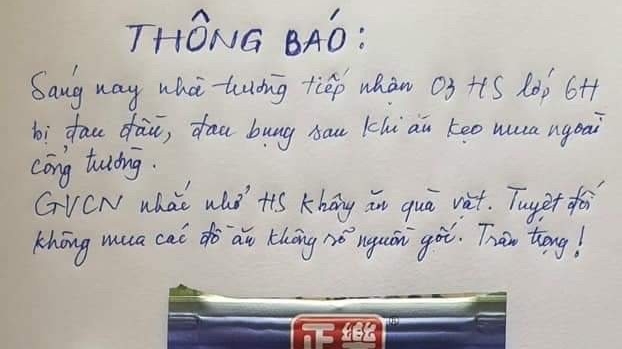 THÔNG BÁO:
Sáng nay nhà trường tiếp nhận 03 HS lớp 6H
bị đau đầu, đau bụng sau khi ăn kẹo mua ngoài
cổng trường.
GVCN nhắc nhở HS không ăn quà vặt. Tuyệt đối
không mua các đồ ăn không rõ nguồn gốc. Trân trọng!
正樂®